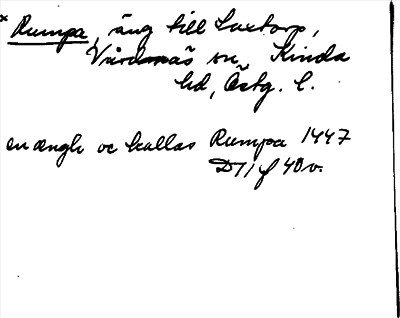 × Rumpa, äng till Laxtorp,
Vårdnäs sn, Kinda
hd, Östg. l.
en ængh oc kallas Rumpa 1447
D 11 f 40 v.